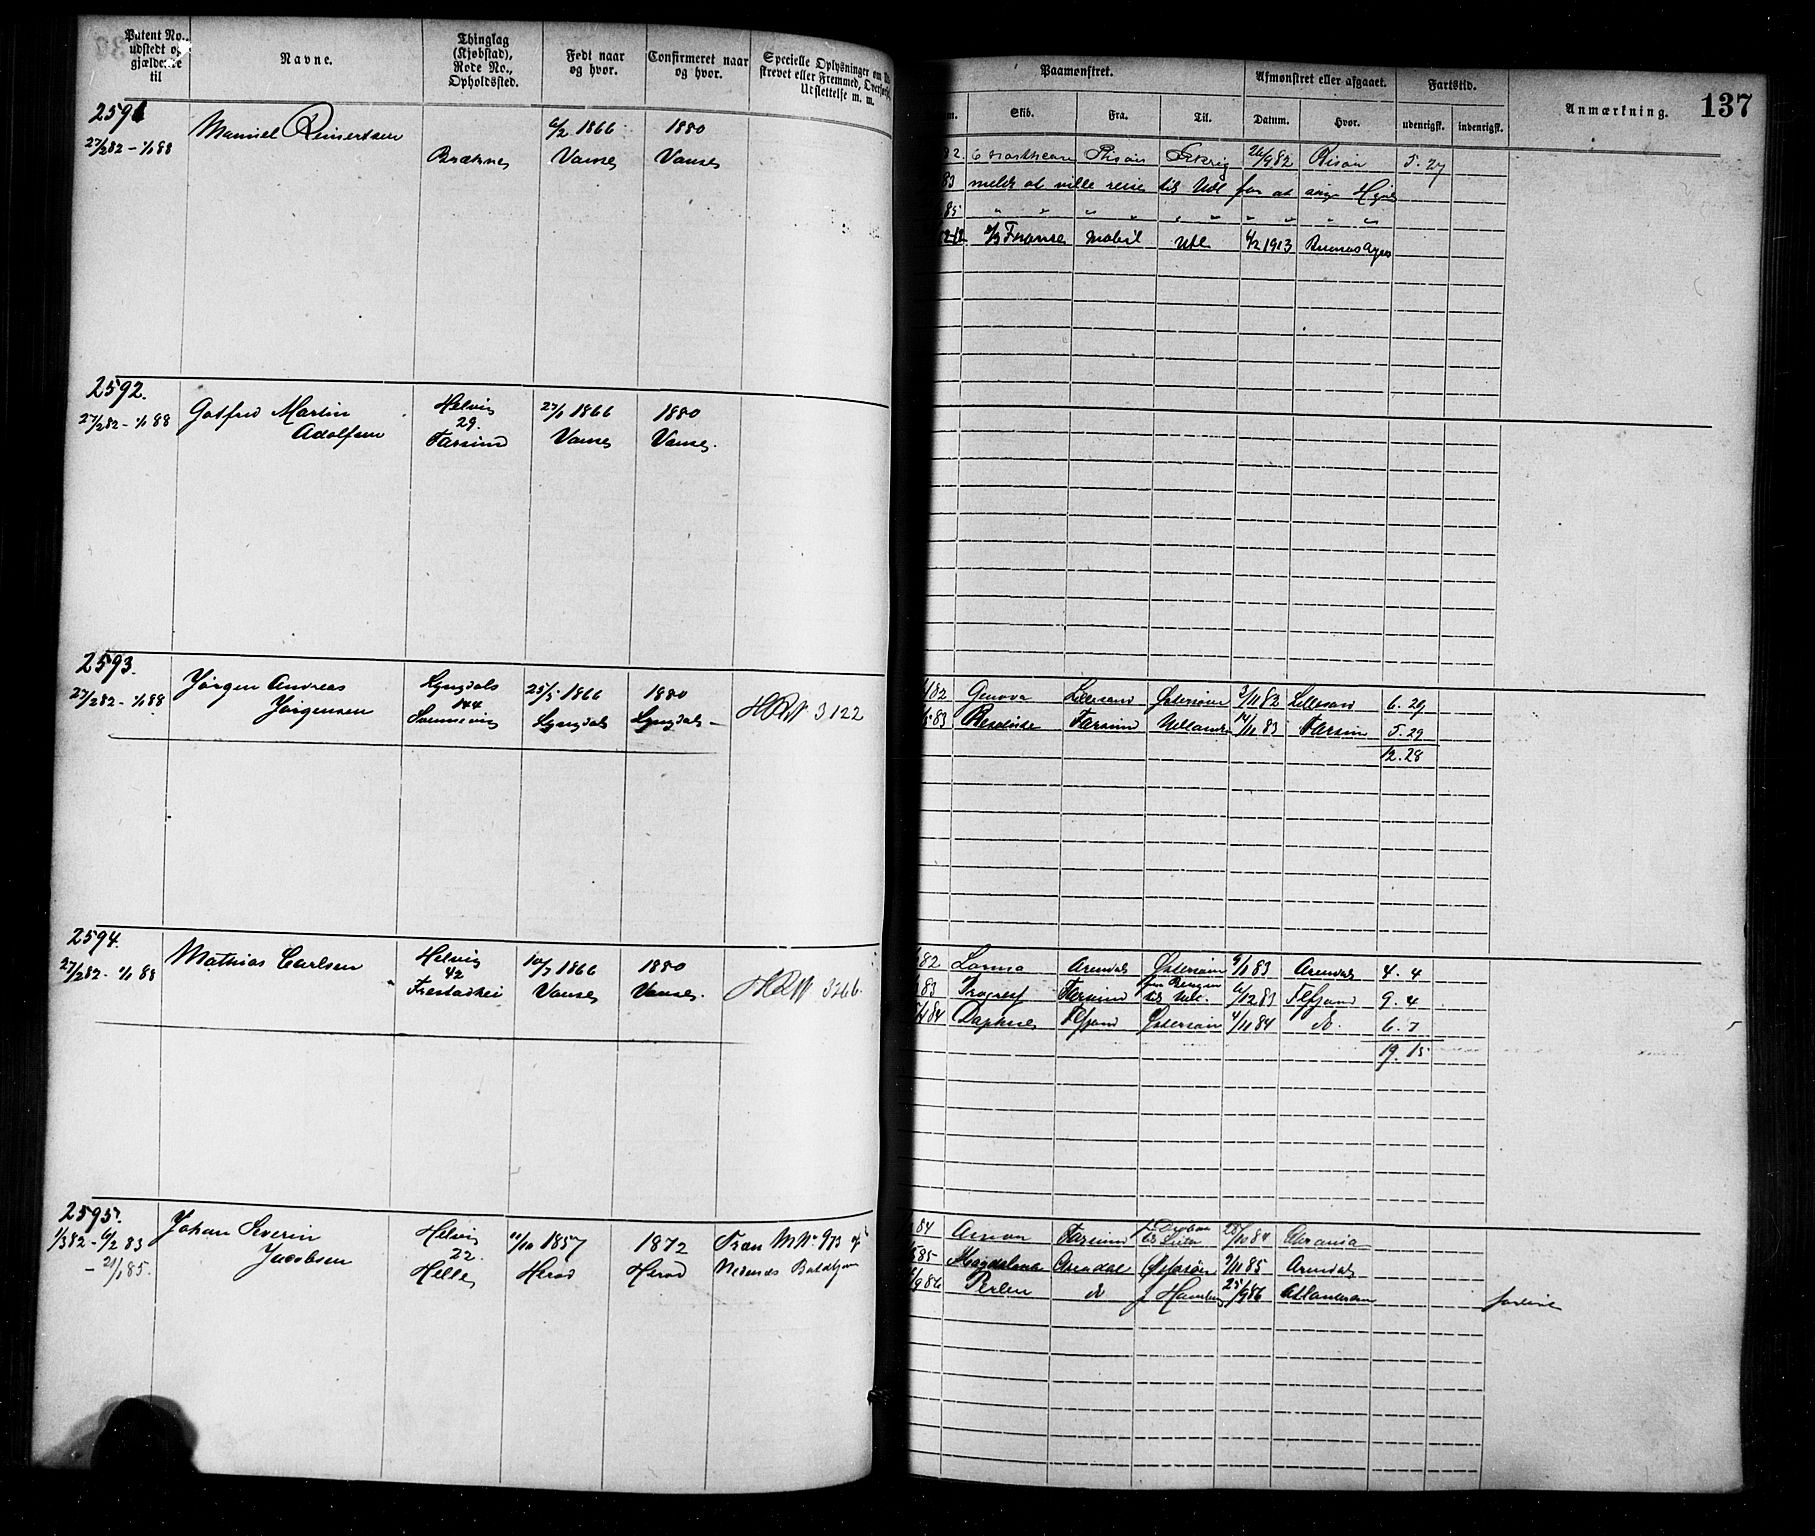 Patent No.,
udstedt og
gjældende
til
Navne.
Thinglag
(Kjøbstad),
Rode No.,
Opholdssted.
Født naar
og hvor.
Confirmeret naar
og hvor.
Specielle Oplysninger om
strevet eller Fremmed,
Udslettelse m. m.
2591
27/2 82 - 1/1 88
Manuel Reinertsen
Bræknes
6/2 1866
Vanse
1880
Vanse
2592.
27/2 82 - 1/1 88
Gotfred Martin
Adolfsen
Helvig
29.
Farsund
27/1 1866
Vanse
1880
Vanse.
2593.
27/2 82 - 1/1 88
Jørgen Andreas
Jørgensen
Lyngdals
144
25/5 1866
Lyngdals
1880
Lyngdals
HRN 3122
2594.
27/2 82 - 1/1 88
Mathias Carlsen
Helvig
42
10/7 1866
Vanse
1880
Vanse.
HRN 3266.
2595.
1/3 82 - 6/2 83
- 21/1 85.
Johan Severin
Jacobsen
Helvig
22.
Helle
11/10 1857
Herad
1872
Herad
Fra MN 973 af
137
Paamønstret.
Afmønstret eller afgaaet.
Fartstid.
Anmærkning.
Skib.
Fra.
Til.
Datum.
Hvor.
udenrigsk.
indenrigsk.
82. Risør 26/9 82 Risør 5. 27
83 meldt at ville reise til Udl for at
85 " " " " " " " " " "
Mobil Udl 6/2 1913 Buenos Ayres
82 Genova Lillesand Østersøen 2/11 82 Lillesand 6. 29
83 Farsund 14/11 83 Farsun 5. 29
12. 28
82 Lorma Arendal Østersøen 9/11 83 Arendal 4. 4
83 Progress Farsund til Udl. 6/12 83 9. 4
84 Daphne Østersøen 4/11 84 do. 6. 7
19. 15
84 Farsund 28/10 84
85 Magdalena Arendal Østersøn 9/11 85 Arendal
9 86 Perlen do f Hamburg 25/9 86 Atlanteren
forlist